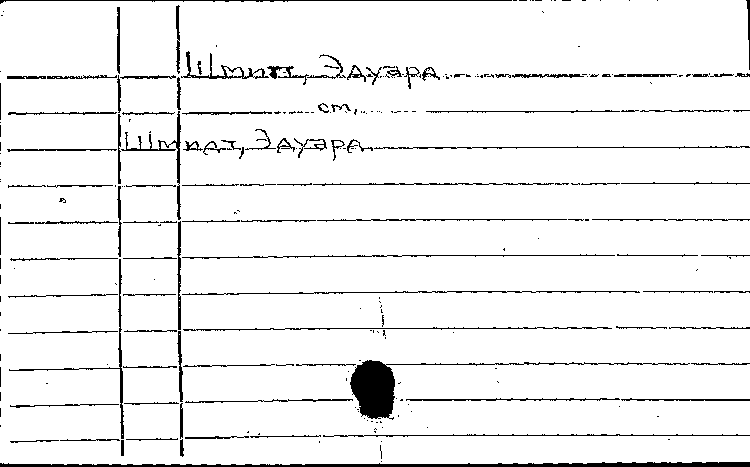 Шмитт, Эдуард
см.
Шмидт, Эдуард.